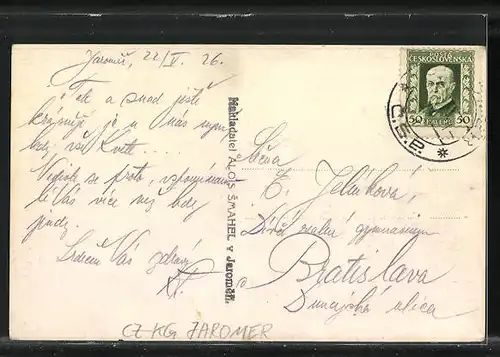 Jaroměř, 22/V. 26.
Tak a snad ještě
krásněji je u nás nyní,
kdy vše kvete...
Vás více než kdy
jindy.
Srdcem Vás zdraví
Nakladatel ALOIS ŠMAHEL v Jaroměři.
POŠTA
ČESKOSLOVENSKÁ
50 HALÉŘŮ 50
Č.S.P.
Slečna
E. Jelínková,
Dívčí reálné gymnasium
Bratislava
Dunajská ulica
CZ KG JAROMER